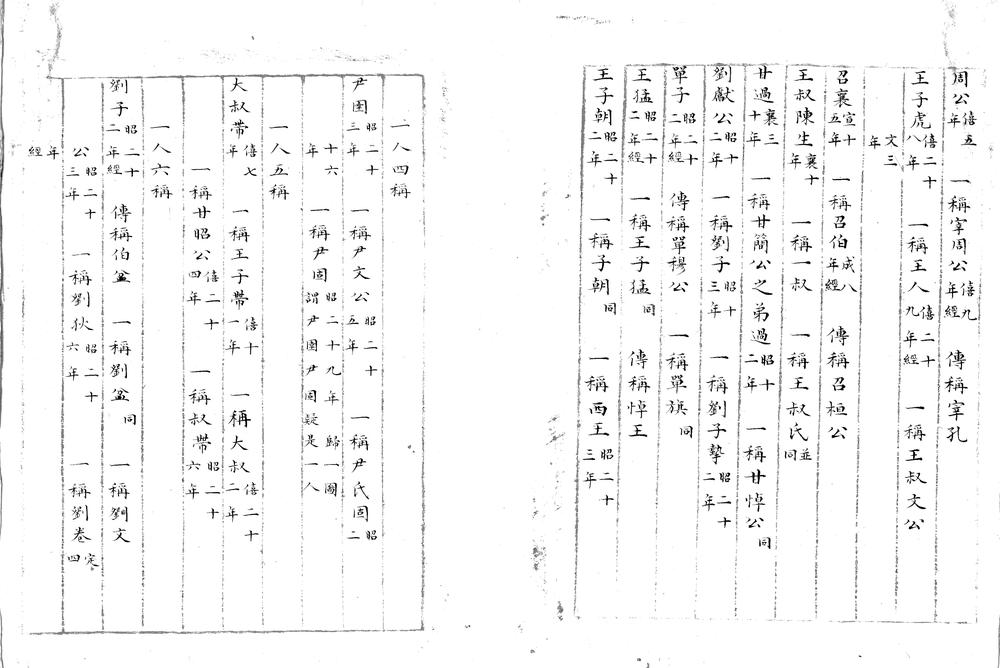 周公僖五年 一稱宰周公僖九年經 傳稱宰孔
王子虎僖二十八年 一稱王人僖二十九年經 一稱王叔文公
文三年
召襄宣十五年 一稱召伯成八年經 傳稱召桓公
王叔陳生襄十年 一稱一叔 一稱王叔氏並同
甘過襄三十年 一稱甘簡公之弟過昭十二年 一稱甘悼公同
劉獻公昭十二年 一稱劉子昭十三年 一稱劉子摯昭二十二年
單子昭二十二年經 傳稱單穆公 一稱單旗同
王猛昭二十二年經 一稱王子猛同 傳稱悼王
王子朝昭二十二年 一稱子朝同 一稱西王昭二十三年
一八四稱
尹圉昭二十三年 一稱尹文公昭二十五年 一稱尹氏固昭二
十六年 一稱尹固昭二十九年歸一圖謂尹圉尹固疑是一人
一八五稱
大叔帶僖七年 一稱王子帶僖十一年 一稱大叔僖二十二年
一稱甘昭公僖二十四年 一稱叔帶昭二十六年
一八六稱
劉子昭二十二年經 傳稱伯盆 一稱劉盆同 一稱劉文
公昭二十三年 一稱劉狄昭二十六年 一稱劉卷定四
年經